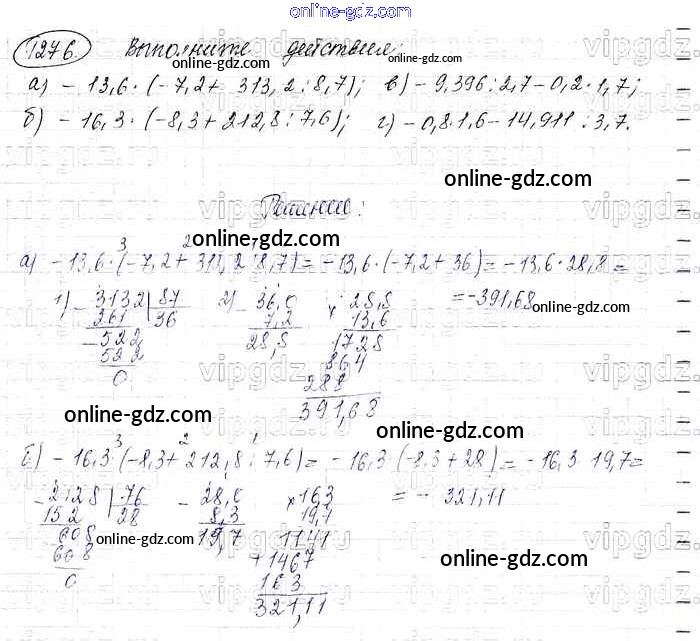 online-gdz.com
1276. Выполните действия:
а) - 13,6 · (-7,2 + 313,2 : 8,7); в) - 9,396 : 2,7 - 0,2 · 1,7;
б) - 16,3 · (-8,3 + 212,8 : 7,6); г) - 0,8 · 1,6 - 14,911 : 3,7.
online-gdz.com
Решение:
online-gdz.com
3 2 1
а) - 13,6 · (-7,2 + 313,2 : 8,7) = - 13,6 · (-7,2 + 36) = - 13,6 · 28,8 =
= -391,68
online-gdz.com
1) 3132 | 87 2) 36,0 × 28,8
261 36 7,2 13,6
522 28,8 1728
522 864
0 288
391,68
online-gdz.com
online-gdz.com
3 2 1
б) - 16,3 · (-8,3 + 212,8 : 7,6) = - 16,3 · (-8,3 + 28) = - 16,3 · 19,7 =
= - 321,11
2128 | 76 - 28,0 × 16,3
152 28 8,3 19,7
608 19,7 1141
608 + 1467
0 163
321,11
online-gdz.com
online-gdz.com